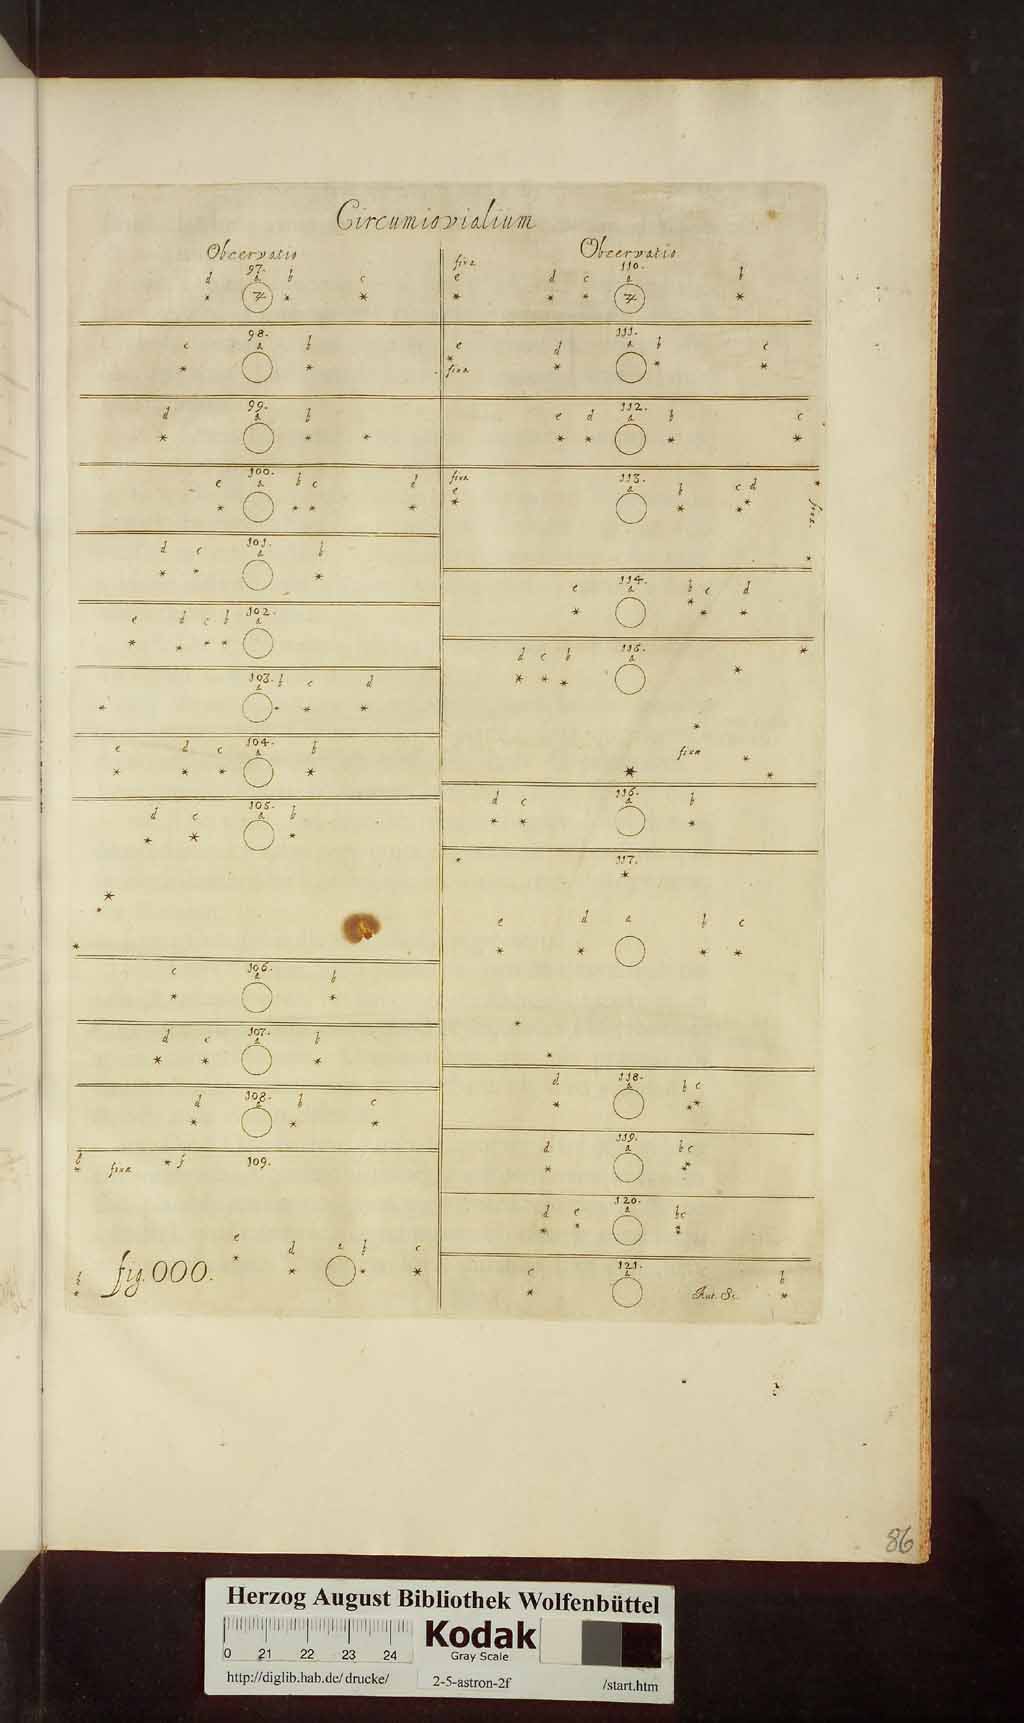 Circumiovialium
Obcervatio
97.
d a b c
♃
98.
c a b
99.
d a b
100.
e a b c d
101.
d c a b
102.
e d c b a
103.
a b c d
104.
e d c a b
105.
d c a b
106.
c a b
107.
d c a b
108.
d a b c
109.
g fixa f
e d a b c
h fig. 000.
Obcervatio
110.
fixa
e d c a b
♃
111.
e d a b c
fixa
112.
e d a b c
113.
fixa
e a b c d
fixa.
114.
e a b c d
115.
d c b a
fixa
116.
d c a b
117.
e d a b c
118.
d a b c
119.
d a b c
120.
d e a b c
121.
c a b
86
Herzog August Bibliothek Wolfenbüttel
Kodak
Gray Scale
0 21 22 23 24
http://diglib.hab.de/drucke/ 2-5-astron-2f /start.htm